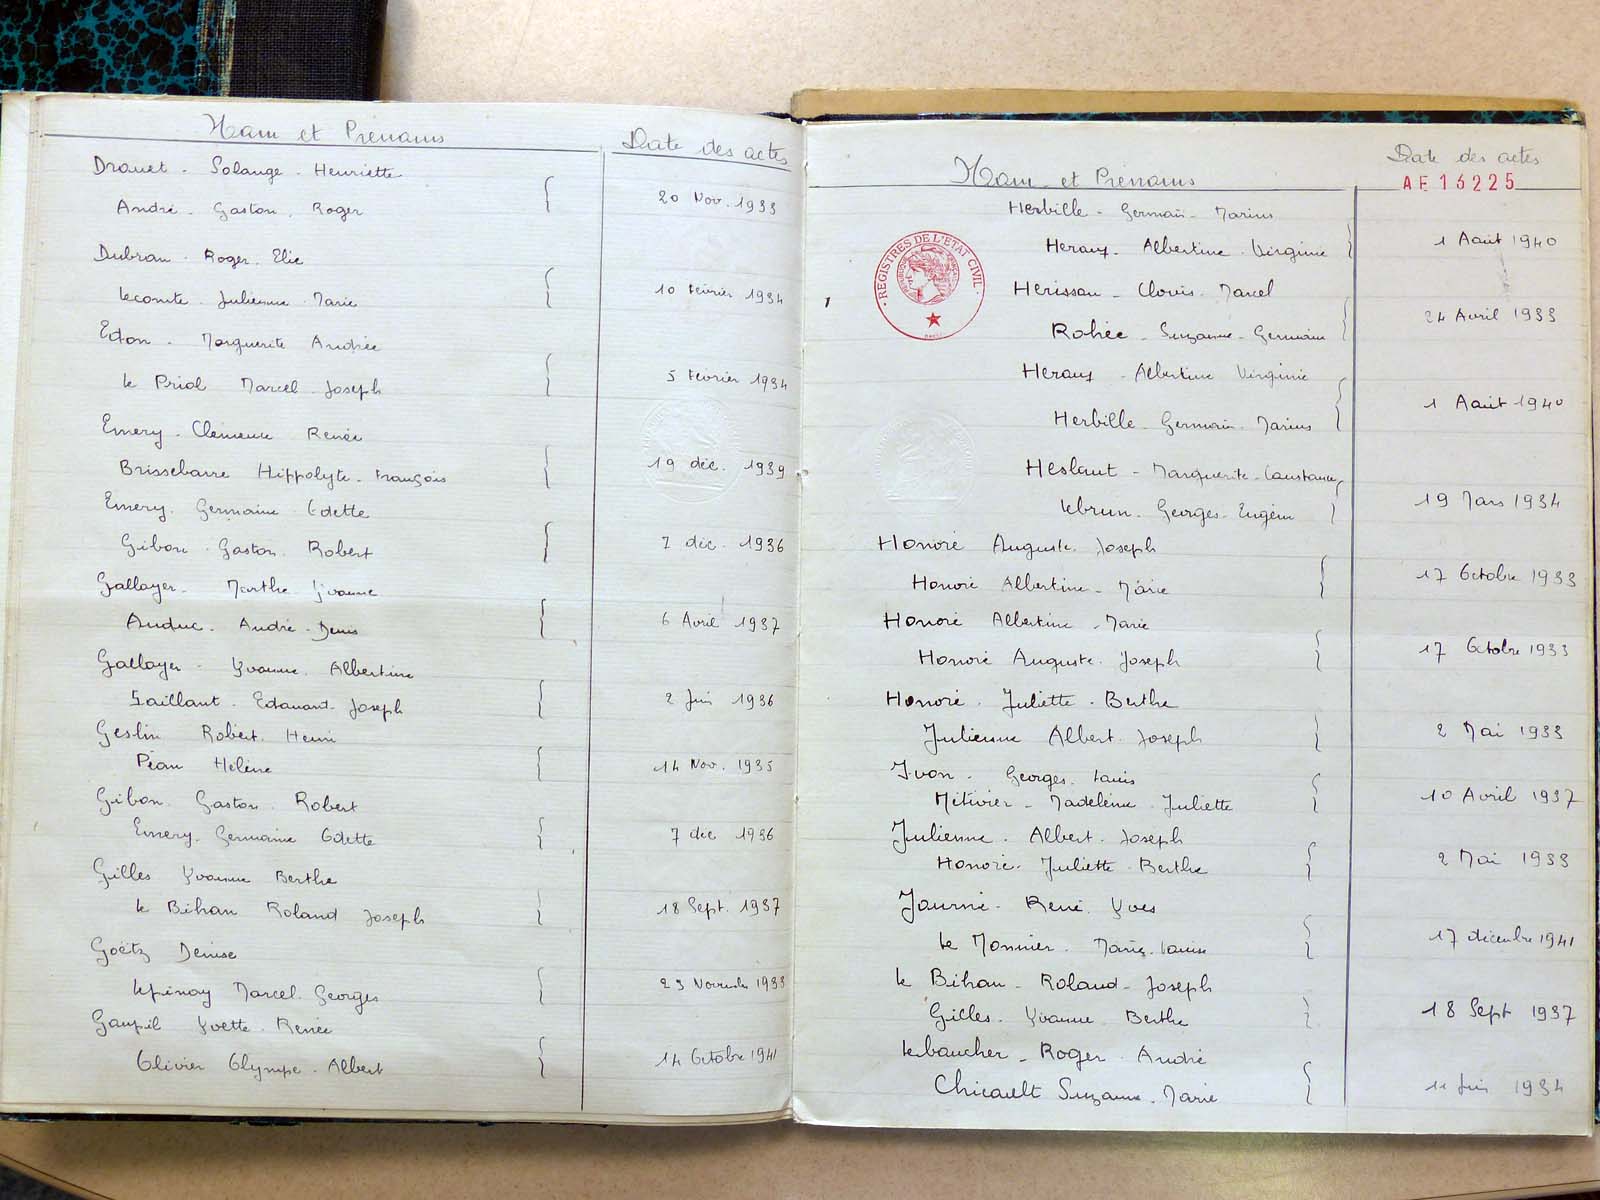 Nom et Prénoms
Date des actes
Drouet - Solange - Henriette
André - Gaston - Roger
20 Nov. 1933
Dubran - Roger - Elie
Lecomte - Julienne - Marie
10 Février 1934
Edon - Marguerite Andrée
Le Priol Marcel - Joseph
5 Février 1934
Emery - Clémence Renée
Brissebarre Hippolyte - François
19 déc. 1939
Emery - Germaine - Odette
Gibon - Gaston - Robert
7 déc. 1936
Gallayer - Marthe Yvonne
Auduc - André - Denis
6 Avril 1937
Gallayer - Yvonne - Albertine
Gaillant - Edouard - Joseph
2 Juin 1936
Geslin Robert - Henri
Péan Hélène
14 Nov. 1935
Gibon - Gaston - Robert
Emery - Germaine Odette
7 déc 1936
Gilles Yvonne Berthe
Le Bihan Roland Joseph
18 Sept. 1937
Goëtz Denise
Lepinay Marcel - Georges
23 Novembre 1933
Goupil Yvette - Renée
Olivier Olympe - Albert
14 Octobre 1941
Date des actes
Nom et Prénoms
AE 13225
REGISTRES DE L'ETAT CIVIL
Herbille - Germain - Marius
Heraux - Albertine - Virginie
1 Août 1940
Herisson - Clovis - Marcel
Rohée - Suzanne - Germaine
24 Avril 1933
Heraux - Albertine Virginie
Herbille - Germain - Marius
1 Août 1940
Heslaut - Marguerite - Constance
Lebrun - Georges - Eugène
19 Mars 1934
Honoré Auguste - Joseph
Honoré Albertine - Marie
17 Octobre 1933
Honoré Albertine - Marie
Honoré Auguste - Joseph
17 Octobre 1933
Honoré - Juliette - Berthe
Julienne Albert - Joseph
2 Mai 1933
Ivon - Georges - Louis
Métivier - Madeleine - Juliette
10 Avril 1937
Julienne - Albert - Joseph
Honoré - Juliette - Berthe
2 Mai 1933
Journé - René - Yves
Le Monnier - Marie - Louise
17 décembre 1941
Le Bihan - Roland - Joseph
Gilles - Yvonne - Berthe
18 Sept 1937
Leboucher - Roger - André
Chicault Suzanne - Marie
11 Juin 1934